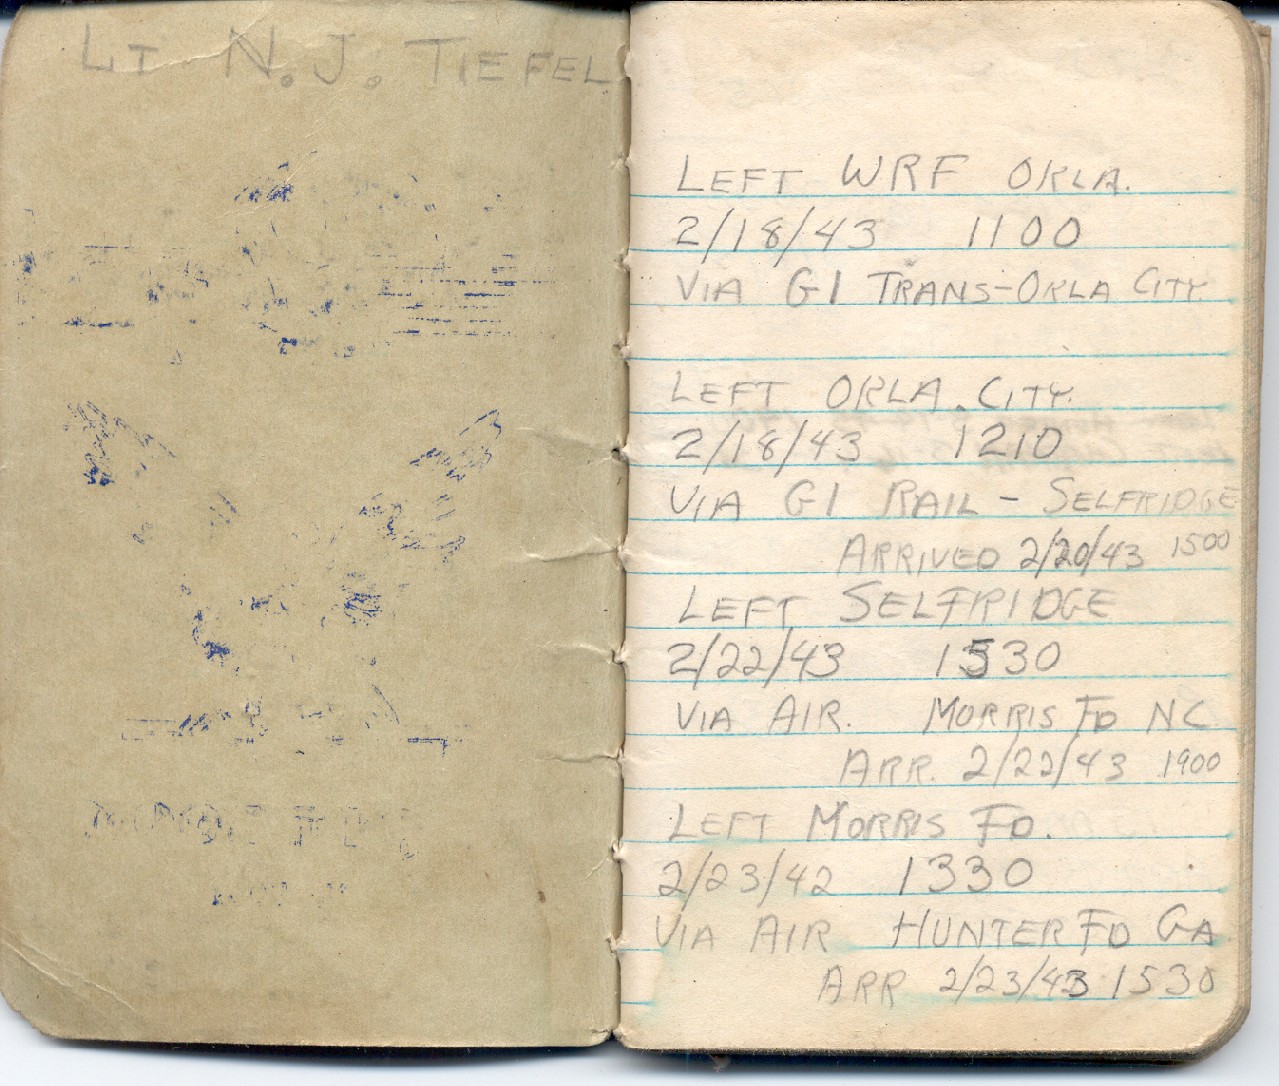 LT. N.J. TIEFEL
LEFT WRF OKLA.
2/18/43 1100
VIA GI TRANS-OKLA CITY
LEFT OKLA. CITY.
2/18/43 1210
VIA GI RAIL - SELFRIDGE
ARRIVED 2/20/43 1500
LEFT SELFRIDGE
2/22/43 1530
VIA AIR. MORRIS FD NC
ARR. 2/22/43 1900
LEFT MORRIS FD.
2/23/42 1330
VIA AIR HUNTER FD GA
ARR 2/23/43 1530